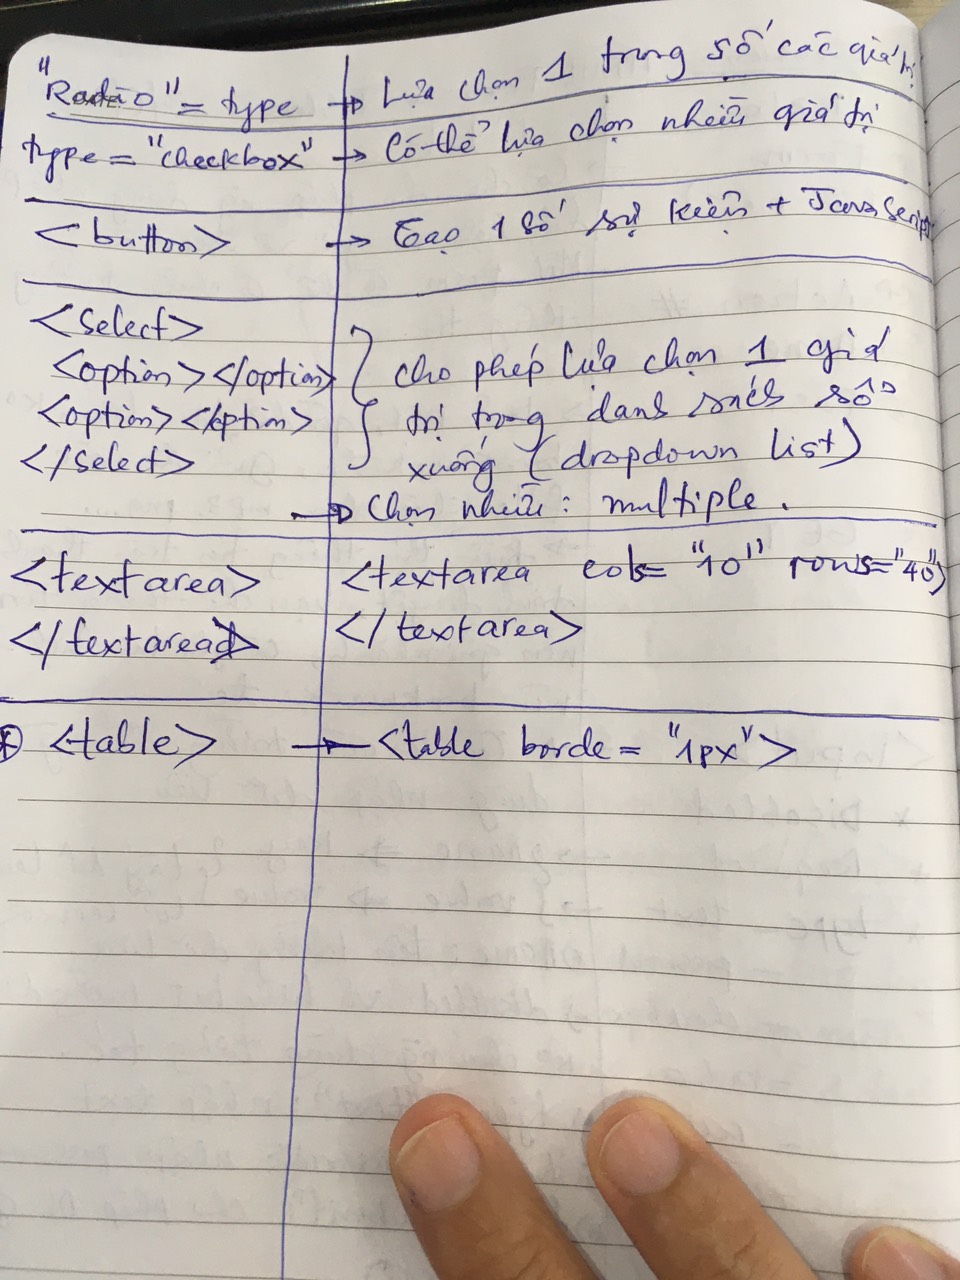 "Radio" = type → Lựa chọn 1 trong số các giá trị
type = "checkbox" → Có thể lựa chọn nhiều giá trị
<button> → Tạo 1 số sự kiện + JavaScript
<select>
<option></option> cho phép lựa chọn 1 giá
<option></option> trị trong danh sách sổ
</select> xuống (dropdown list)
→ Chọn nhiều: multiple.
<textarea> <textarea cols="10" rows="40">
</textarea> </textarea>
<table> → <table borde = "1px">